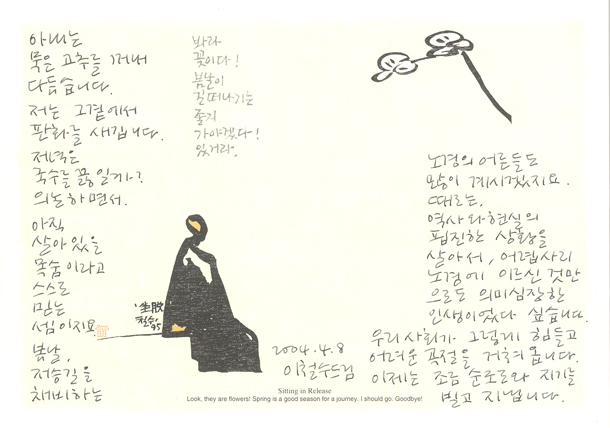 아내는
묵은 고추를 꺼내
다듬습니다.
저는 그곁에서
판화를 새깁니다.
저녁은
국수를 끓일까?
의논하면서.
아직
살아있을
목숨이라고
스스로
믿는
셈이지요.
봄날,
저승길을
채비하는
노경의 어른들도
많이 계시겠지요.
때로는,
역사와 현실의
핍진한 상황을
살아서, 어렵사리
노경에 이르신 것만
으로도 의미심장한
인생이었다 싶습니다.
우리 사회가 그렇게 힘들고
어려운 곡절을 거쳐 옵니다.
이제는 조금 순조로와 지기를
빌고 지냅니다.
2004.4.8
이철수드림
봐라
꽃이다!
봄날이
길떠나기는
좋지
가야겠다!
있거라.
'坐脫
철수
95
Sitting in Release
Look, they are flowers! Spring is a good season for a journey. I should go. Goodbye!